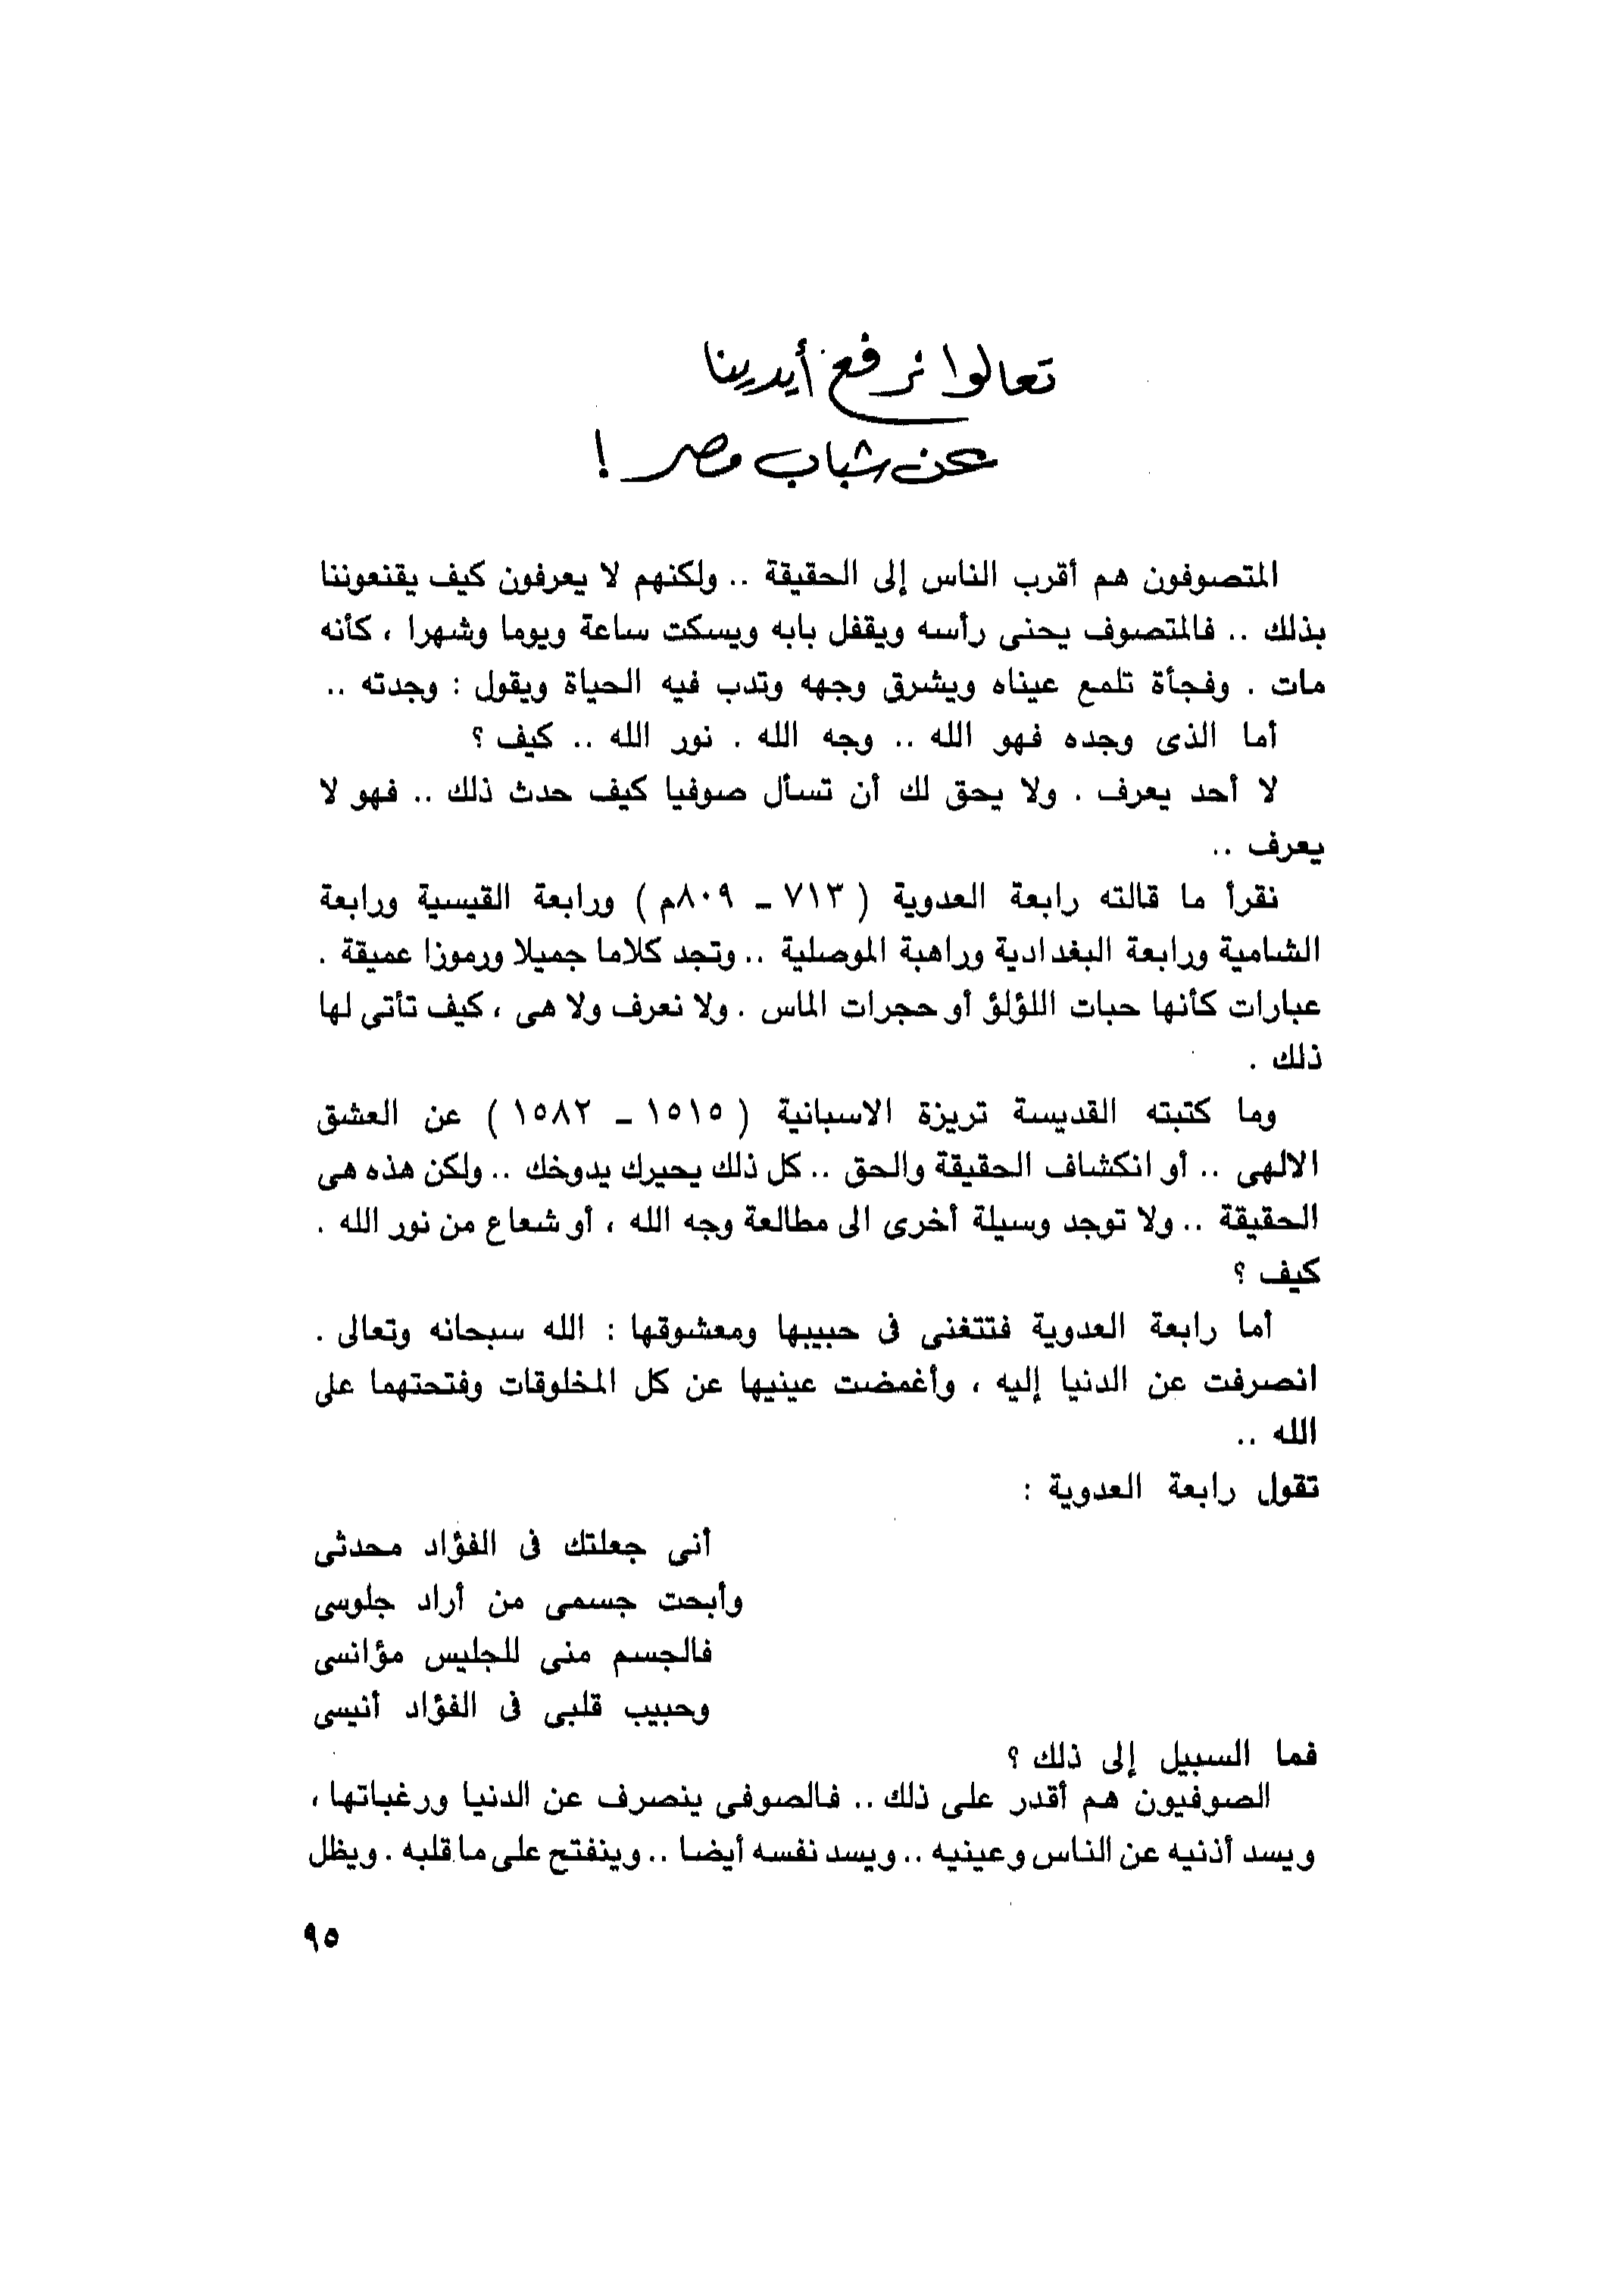 تعالوا نرفع أيدينا
عن شباب مصر !
المتصوفون هم أقرب الناس إلى الحقيقة .. ولكنهم لا يعرفون كيف يقنعوننا
بذلك .. فالمتصوف يحنى رأسه ويقفل بابه ويسكت ساعة ويوما وشهرا ، كأنه
مات . وفجأة تلمع عيناه ويشرق وجهه وتدب فيه الحياة ويقول : وجدته ..
أما الذى وجده فهو الله .. وجه الله . نور الله .. كيف ؟
لا أحد يعرف . ولا يحق لك أن تسأل صوفيا كيف حدث ذلك .. فهو لا
يعرف ..
نقرأ ما قالته رابعة العدوية ( ٧١٣ ـ ٨٠٩م ) ورابعة القيسية ورابعة
الشامية ورابعة البغدادية وراهبة الموصلية .. وتجد كلاما جميلا ورموزا عميقة .
عبارات كأنها حبات اللؤلؤ أو حجرات الماس . ولا نعرف ولا هى ، كيف تأتى لها
ذلك .
وما كتبته القديسة تريزة الاسبانية ( ١٥١٥ ـ ١٥٨٢ ) عن العشق
الالهى .. أو انكشاف الحقيقة والحق .. كل ذلك يحيرك يدوخك .. ولكن هذه هى
الحقيقة .. ولا توجد وسيلة أخرى الى مطالعة وجه الله ، أو شعاع من نور الله .
كيف ؟
أما رابعة العدوية فتتغنى فى حبيبها ومعشوقها : الله سبحانه وتعالى .
انصرفت عن الدنيا إليه ، وأغمضت عينيها عن كل المخلوقات وفتحتهما على
الله ..
تقول رابعة العدوية :
أنى جعلتك فى الفؤاد محدثى
وأبحت جسمى من أراد جلوسى
فالجسم منى للجليس مؤانسى
وحبيب قلبى فى الفؤاد أنيسى
فما السبيل إلى ذلك ؟
الصوفيون هم أقدر على ذلك .. فالصوفى ينصرف عن الدنيا ورغباتها ،
ويسد أذنيه عن الناس وعينيه .. ويسد نفسه أيضا .. وينفتح على ما قلبه . ويظل
٩٥